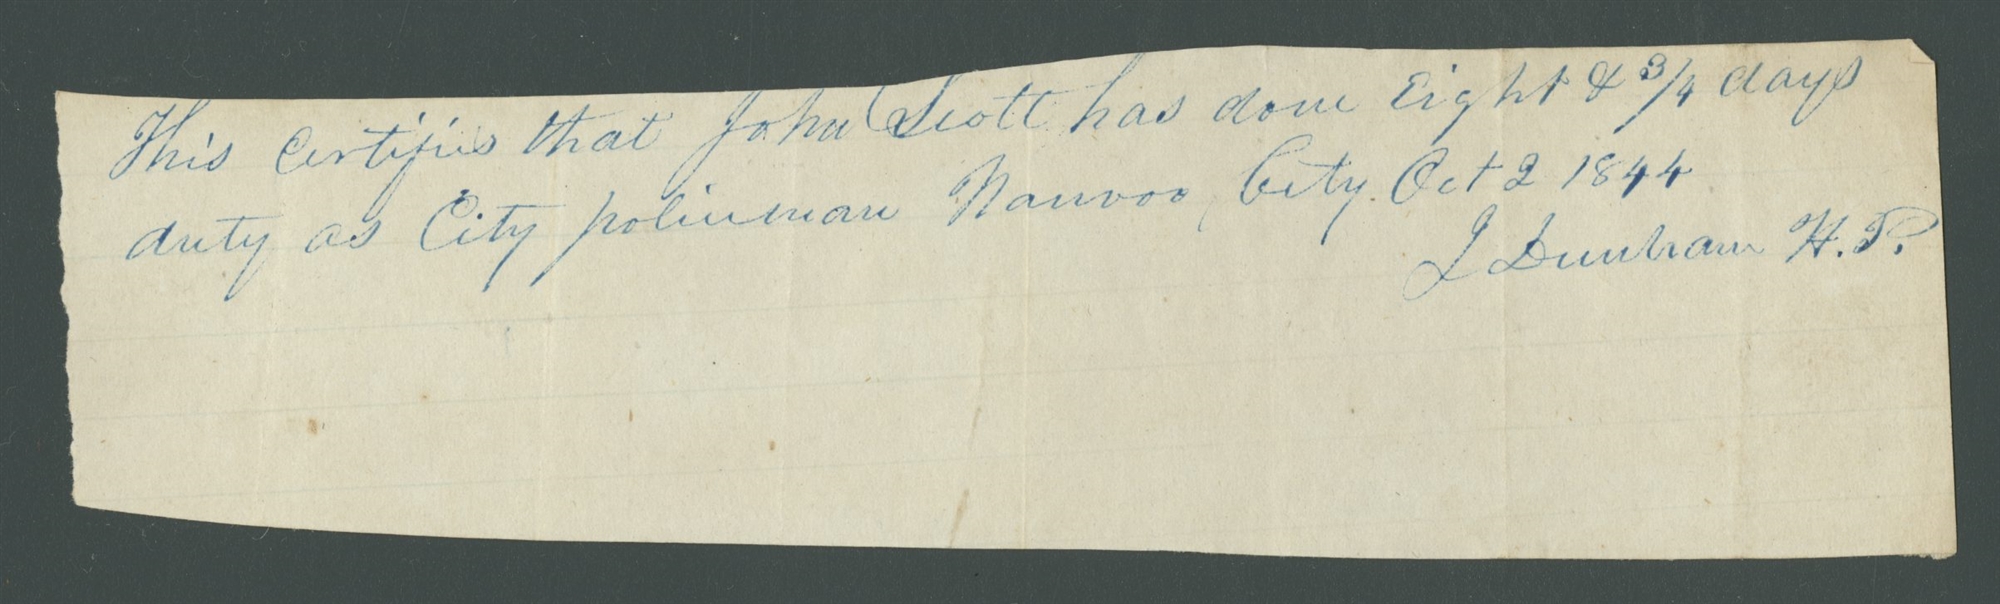 This Certifies that John Scott has done Eight & 3/4 days
duty as City policeman Nauvoo, City. Oct 2 1844
J Dunham H.P.